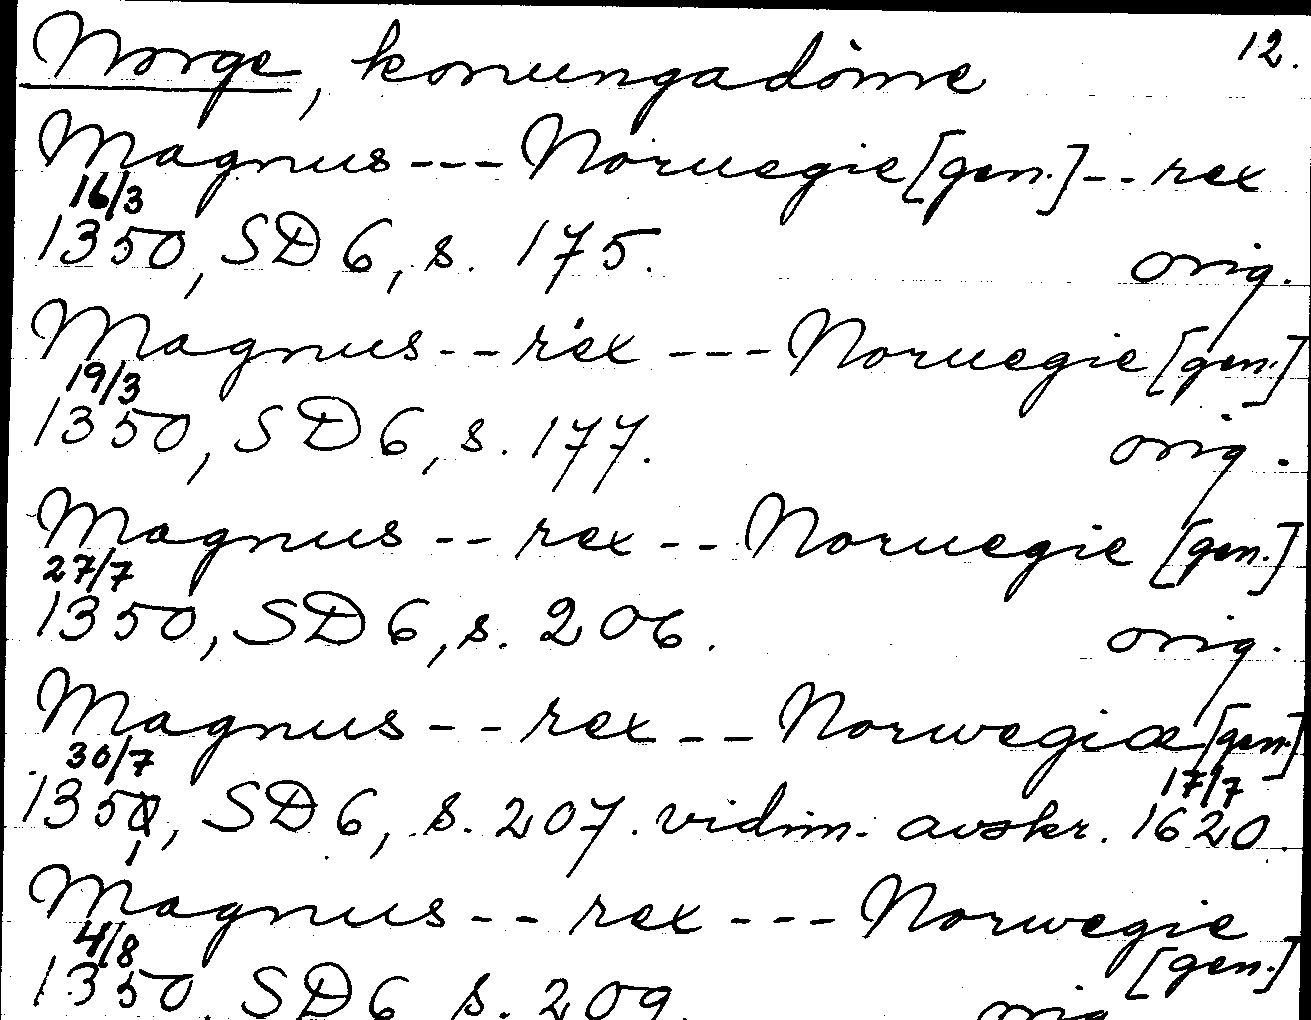 Norge, konungadöme 12.
Magnus --- Noruegie [gen.] -- rex
16/3
1350, SD 6, s. 175. orig.
Magnus -- rex --- Noruegie [gen.]
19/3
1350, SD 6, s. 177. orig.
Magnus -- rex -- Noruegie [gen.]
27/7
1350, SD 6, s. 206. orig.
Magnus -- rex -- Norwegiæ [gen.]
30/7 17/7
1350, SD 6, s. 207. vidim. avskr. 1620.
Magnus -- rex --- Norwegie
4/8 [gen.]
1350, SD 6, s. 209. orig.